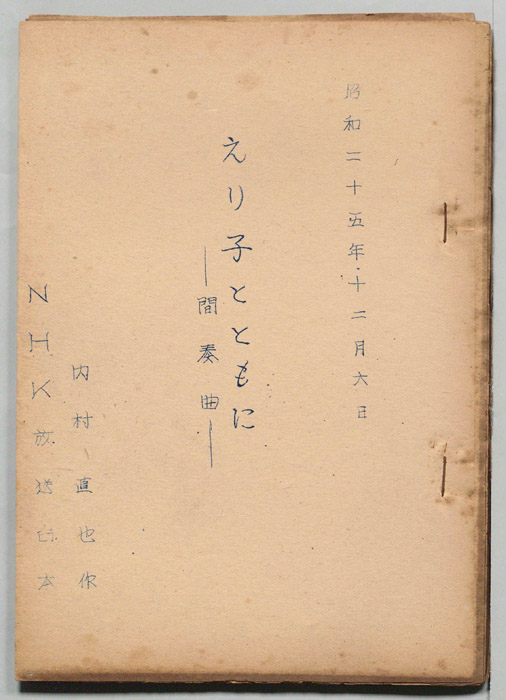 昭和二十五年十二月六日
えり子とともに
―間奏曲―
内村直也作
NHK放送台本